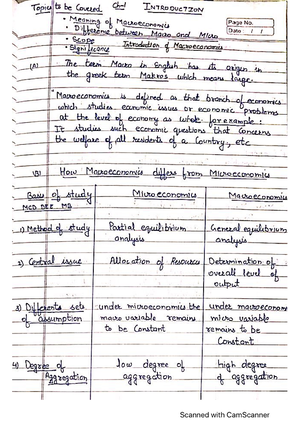 Topics to be Covered Ch-1 INTRODUCTION
• Meaning of Macroeconomics
• Difference between Macro and Micro
• Scope
• Significance Introduction of Macroeconomics
Page No.
Date / /
(A) The term Macro in English has its origin in
the greek term Makros which means larger.
"Macroeconomics is defined as that branch of economics
which studies economic issues or economic problems
at the level of economy as whole for example :
It studies such economic questions that concerns
the welfare of all residents of a country, etc
(B) How Macroeconomics differs from Microeconomics
Basis of study Microeconomics Macroeconomics
1) Method of study Partial equilibrium analysis General equilibrium analysis
2) Central issue Allocation of Resources Determination of overall level of output
3) Differents sets of assumption under microeconomics the macro variable remains to be Constant under macroeconom micro variable remains to be Constant
4) Degree of Aggregation low degree of aggregation high degree of aggregation
Scanned with CamScanner